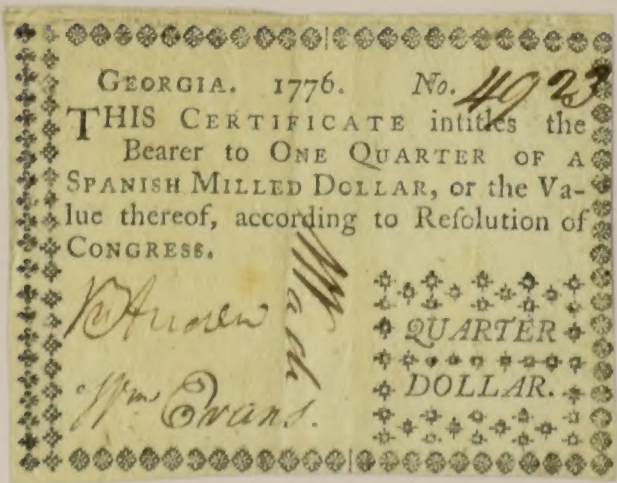 GEORGIA. 1776. No. 4923
THIS CERTIFICATE intitles the
Bearer to ONE QUARTER OF A
SPANISH MILLED DOLLAR, or the Va-
lue thereof, according to Reſolution of
CONGRESS.
Wm Evans.
QUARTER
DOLLAR.